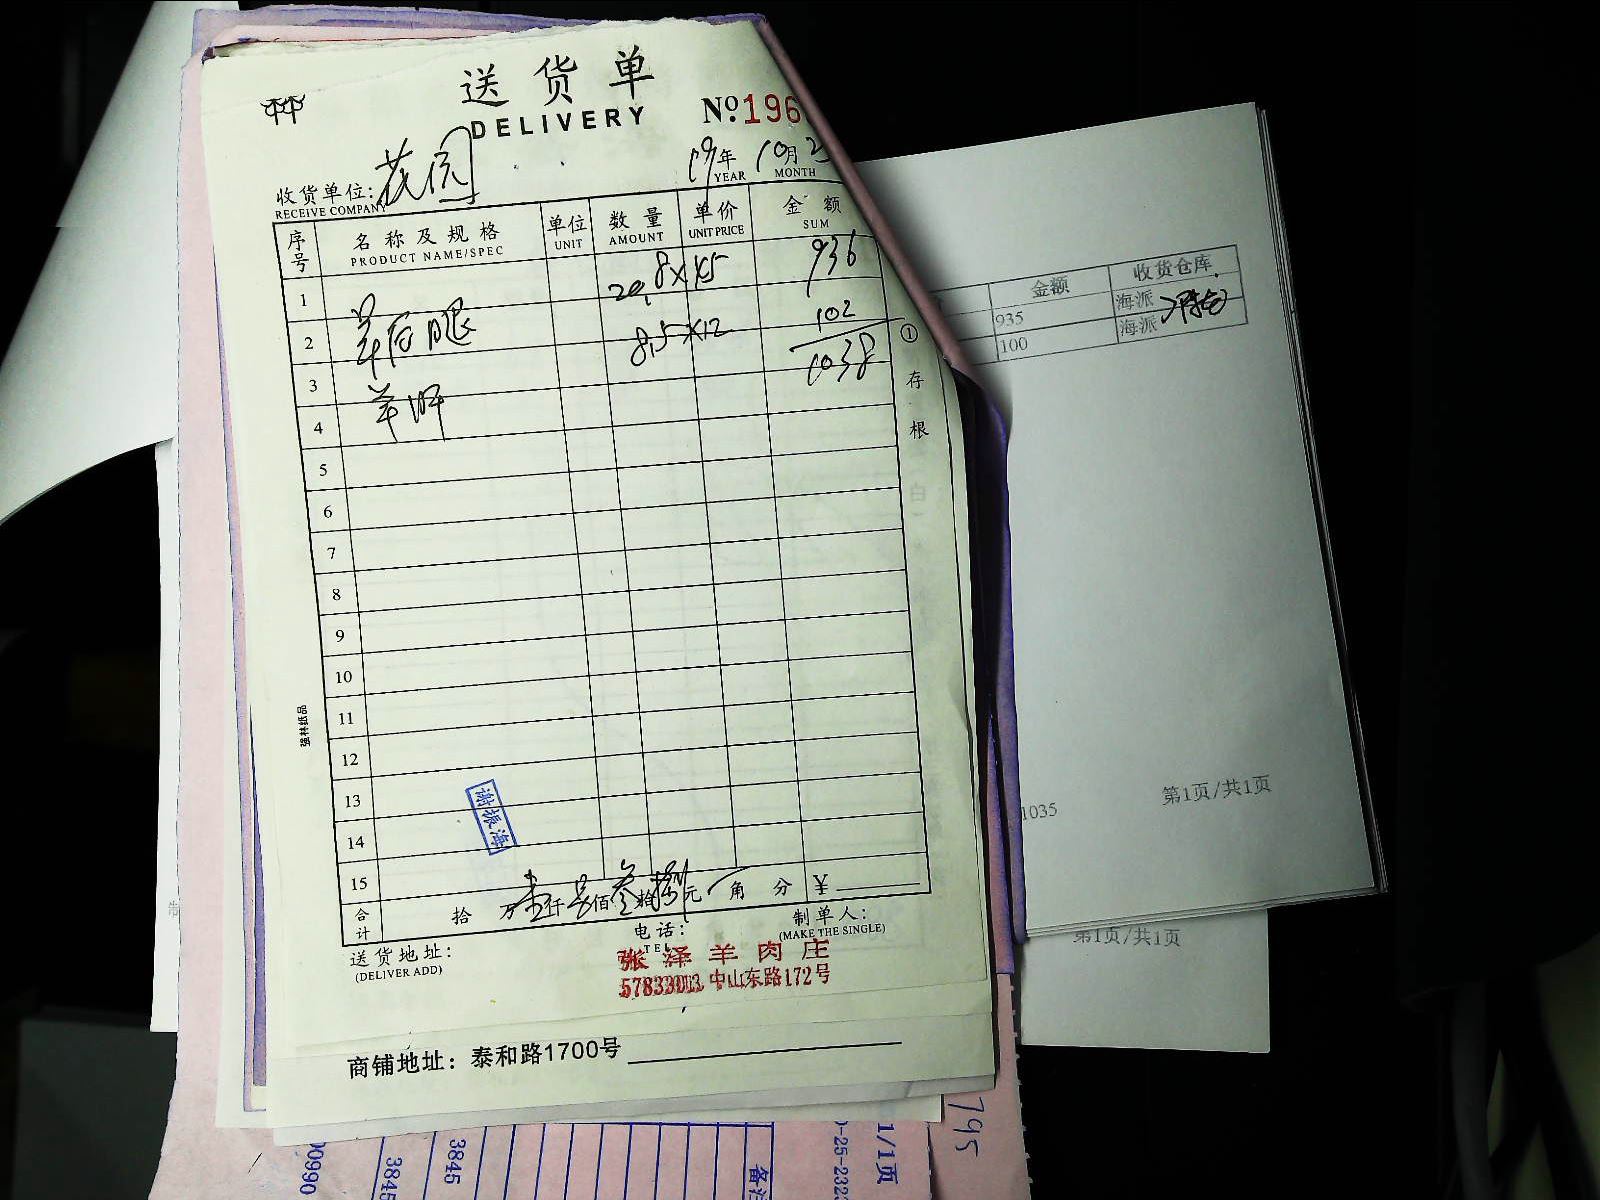 送货单
DELIVERY
№:196
19年 10月
YEAR MONTH
收货单位: 花园
RECEIVE COMPANY
序号 名称及规格 单位 数量 单价 金额
PRODUCT NAME/SPEC UNIT AMOUNT UNIT PRICE SUM
1 20.8×45 936
2 羊后腿 8.5×12 102
3 1038
4 羊肝
5
6
7
8
9
10
11
12
13
14
15
合计 拾 万壹仟 佰叁拾捌元 角 分 ¥
①存根
强林纸品
谢振海
送货地址:
(DELIVER ADD)
电话:
TEL
制单人:
(MAKE THE SINGLE)
张泽羊肉庄
中山东路172号
商铺地址：泰和路1700号
金额 收货仓库
935 海派
100 海派
1035
第1页/共1页
第1页/共1页
795
1/1页
3845
3845
00990